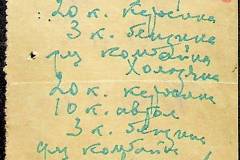 20 к. керосина
3 к. бензина
для комбайна
20 к. керосина
10 к. автол
3 к. бензина
для комбайна